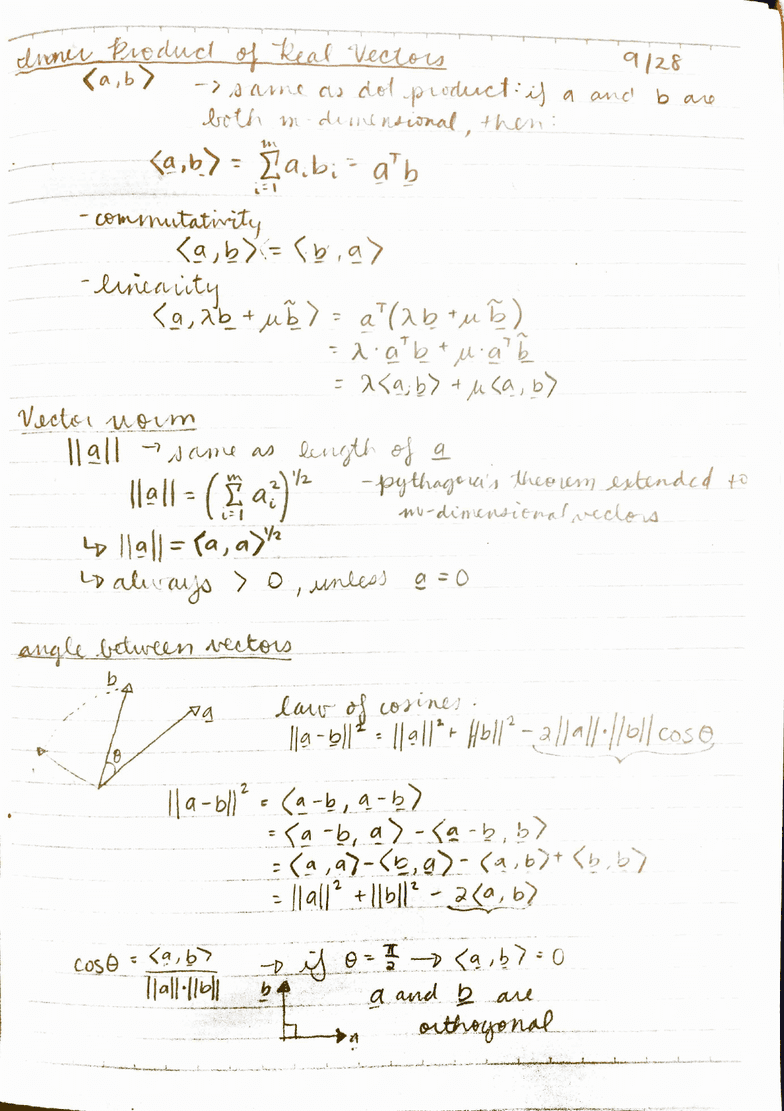 Inner Product of Real Vectors 9/28
⟨a,b⟩ → same as dot product: if a and b are
both m-dimensional, then:
⟨a,b⟩ = Σᵢ₌₁ᵐ aᵢbᵢ = aᵀb
- commutativity
⟨a,b⟩ = ⟨b,a⟩
- linearity
⟨a, λb + μb̃⟩ = aᵀ(λb + μb̃)
= λ·aᵀb + μ·aᵀb̃
= λ⟨a,b⟩ + μ⟨a,b⟩
Vector norm
||a|| → same as length of a
||a|| = (Σᵢ₌₁ᵐ aᵢ²)^1/2 - pythagora's theorem extended to
m-dimensional vectors
↳ ||a|| = ⟨a,a⟩^1/2
↳ always > 0, unless a = 0
angle between vectors
b
a
θ
law of cosines.
||a-b||² = ||a||² + ||b||² - 2||a||·||b|| cosθ
||a-b||² = ⟨a-b, a-b⟩
= ⟨a-b, a⟩ - ⟨a-b, b⟩
= ⟨a,a⟩ - ⟨b,a⟩ - ⟨a,b⟩ + ⟨b,b⟩
= ||a||² + ||b||² - 2⟨a,b⟩
cosθ = ⟨a,b⟩ / ||a||·||b|| → if θ = π/2 → ⟨a,b⟩ = 0
b
a and b are
orthogonal
a